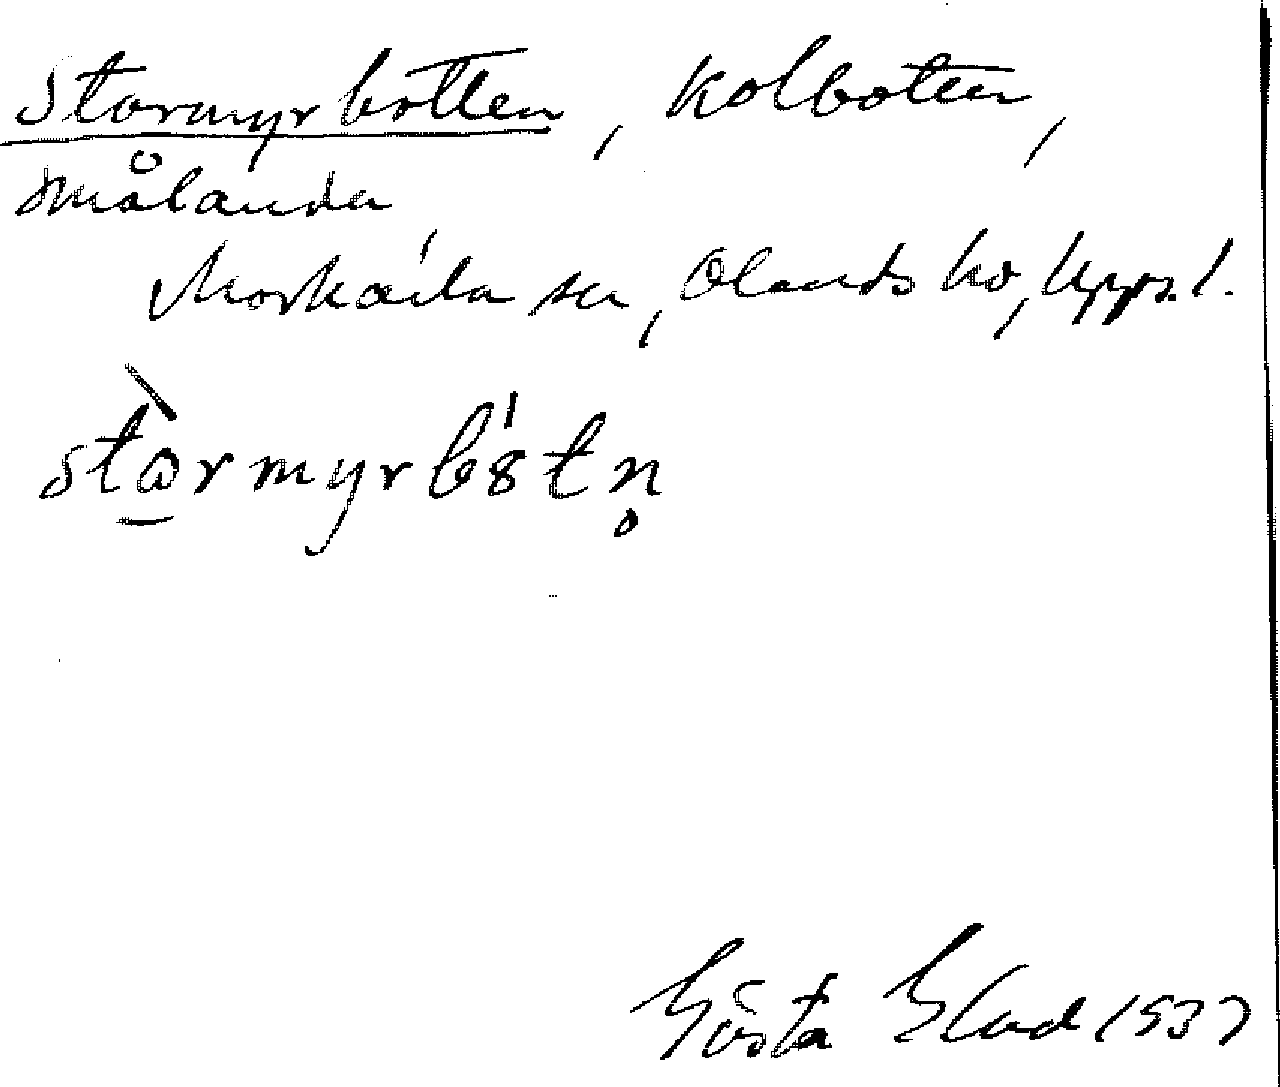 Stormyrbotten, Kolbotten,
Målanda
Morkarla sn, Olands hd, Uppl.
stɷrmyrbȣtn̥
Gösta Eklund 1937